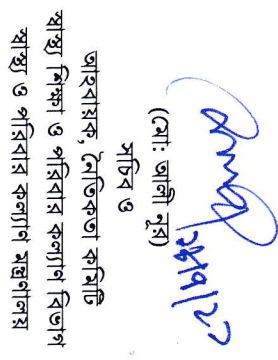 ২৮/৭/২১
(মো: আলী নূর)
সচিব ও
আহবায়ক, নৈতিকতা কমিটি
স্বাস্থ্য শিক্ষা ও পরিবার কল্যাণ বিভাগ
স্বাস্থ্য ও পরিবার কল্যাণ মন্ত্রণালয়